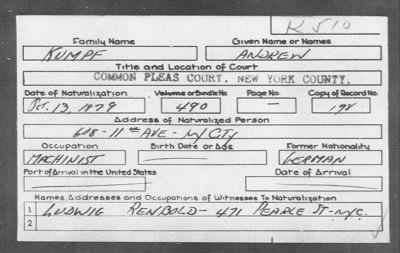 K 510
Family Name Given Name or Names
KUMPF ANDREW
Title and Location of Court
COMMON PLEAS COURT, NEW YORK COUNTY.
Date of Naturalization Volume or Bundle No. Page No. Copy of Record No.
Oct. 13, 1879 490 — 194
Address of Naturalized Person
608-11th AVE - NYCTY
Occupation Birth Date or Age Former Nationality
MACHINIST GERMAN
Port of Arrival in the United States Date of Arrival
Names, Addresses and Occupations of Witnesses To Naturalization
1 LUDWIG RENBOLD - 471 PEARLE ST - NYC.
2